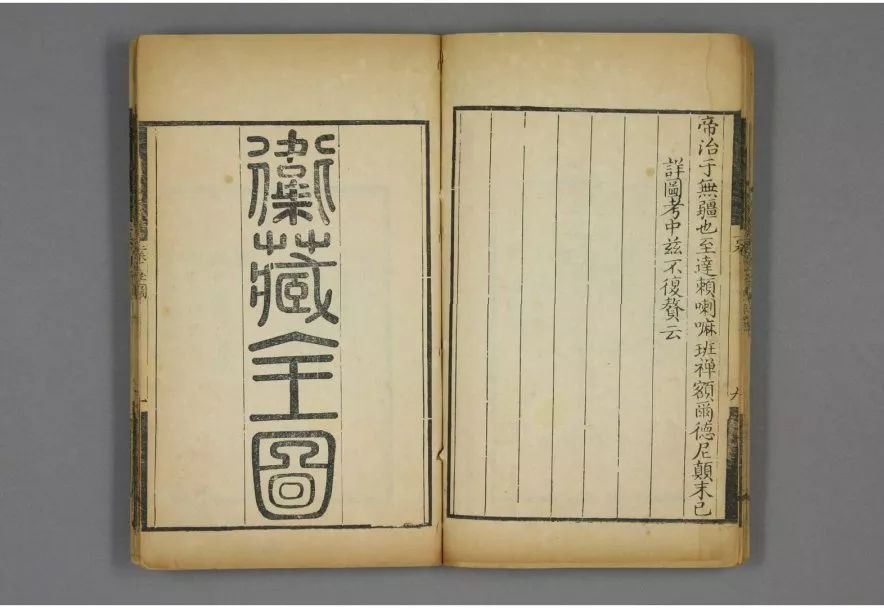 帝治于無疆也至達賴喇嘛班禪額爾德尼顛末已
詳圖考中茲不復贅云
衛藏全圖